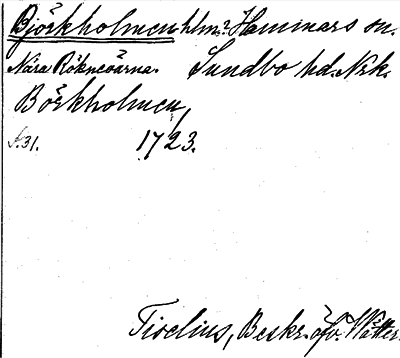 Björkholmen hlm? Hammars sn.
Nära Rökneöarna. Sundbo hd. Nrk.
Börkholmen,
s. 31. 1723.
Tiselius, Beskr. öfv. Wätter.